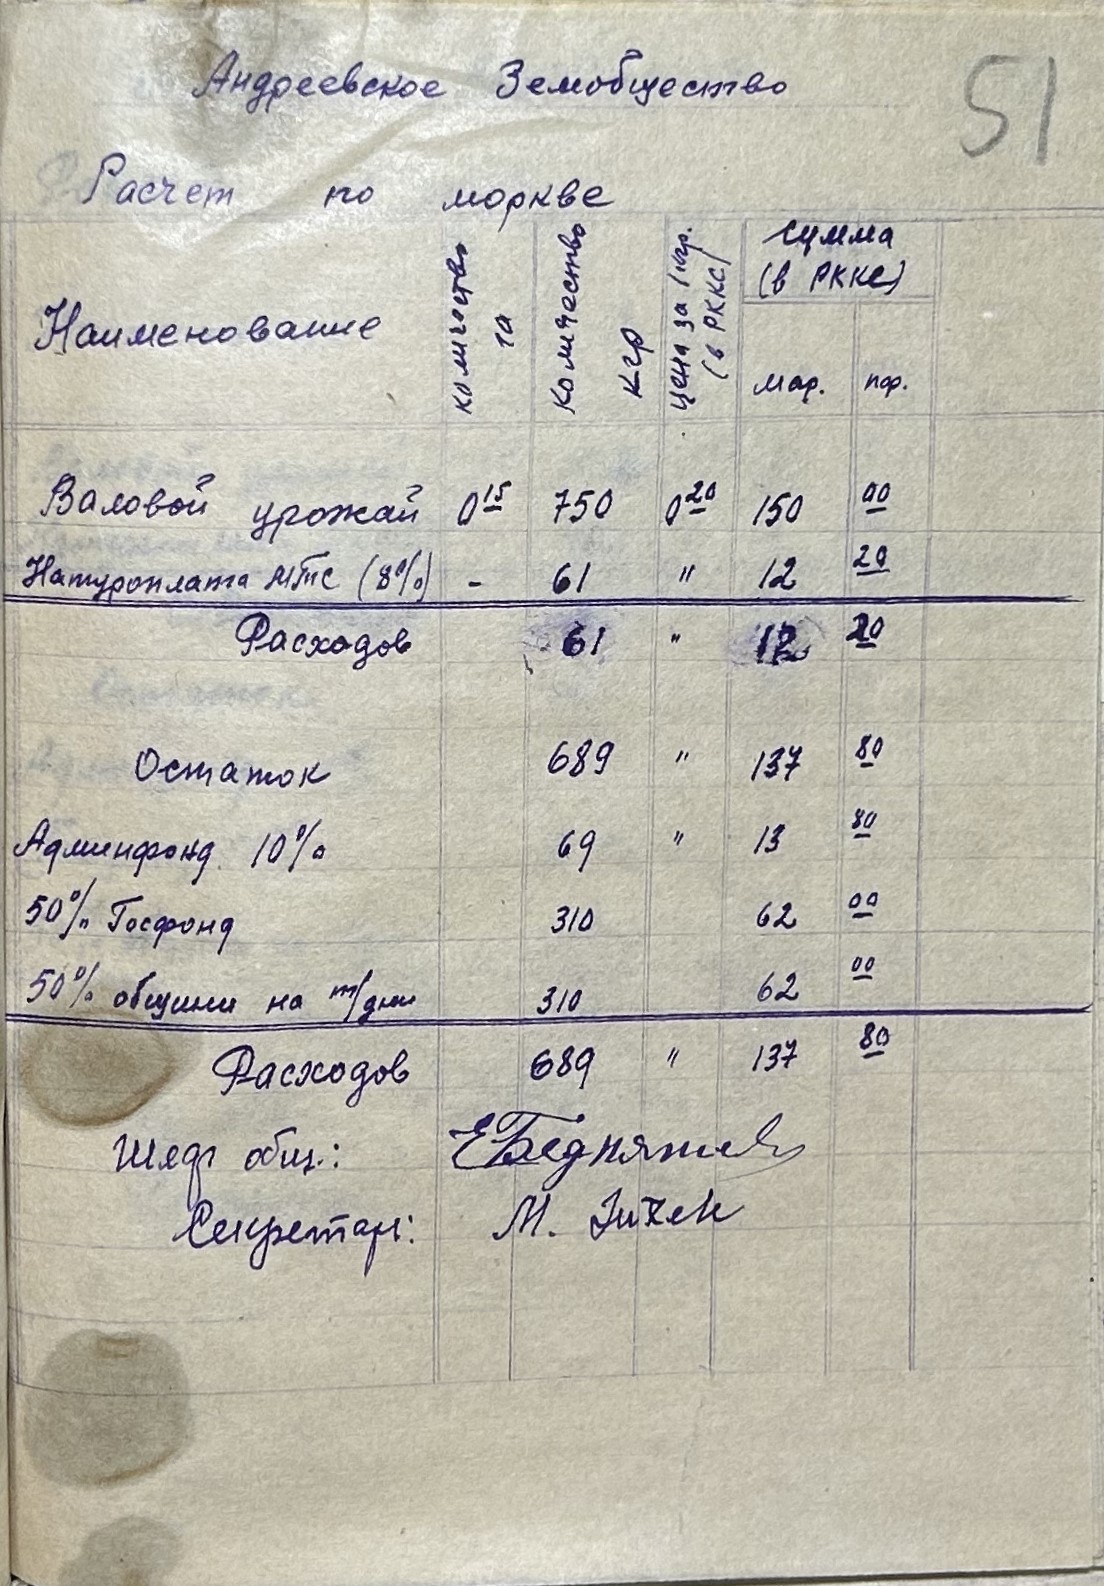 51
Андреевское Земобщество
Расчет по моркве
Наименование количество га количество кгр цена за 1 кгр. (в РККС) сумма (в РККС)
мар. пф.
Валовой урожай 0 15 750 0 20 150 00
Натуроплата МТС (8%) - 61 " 12 20
Расходов 61 " 12 20
Остаток 689 " 137 80
Админфонд 10% 69 " 13 80
50% Госфонд 310 62 00
50% общини на т/дни 310 62 00
Расходов 689 " 137 80
Шеф общ.:
Секретарь: М.